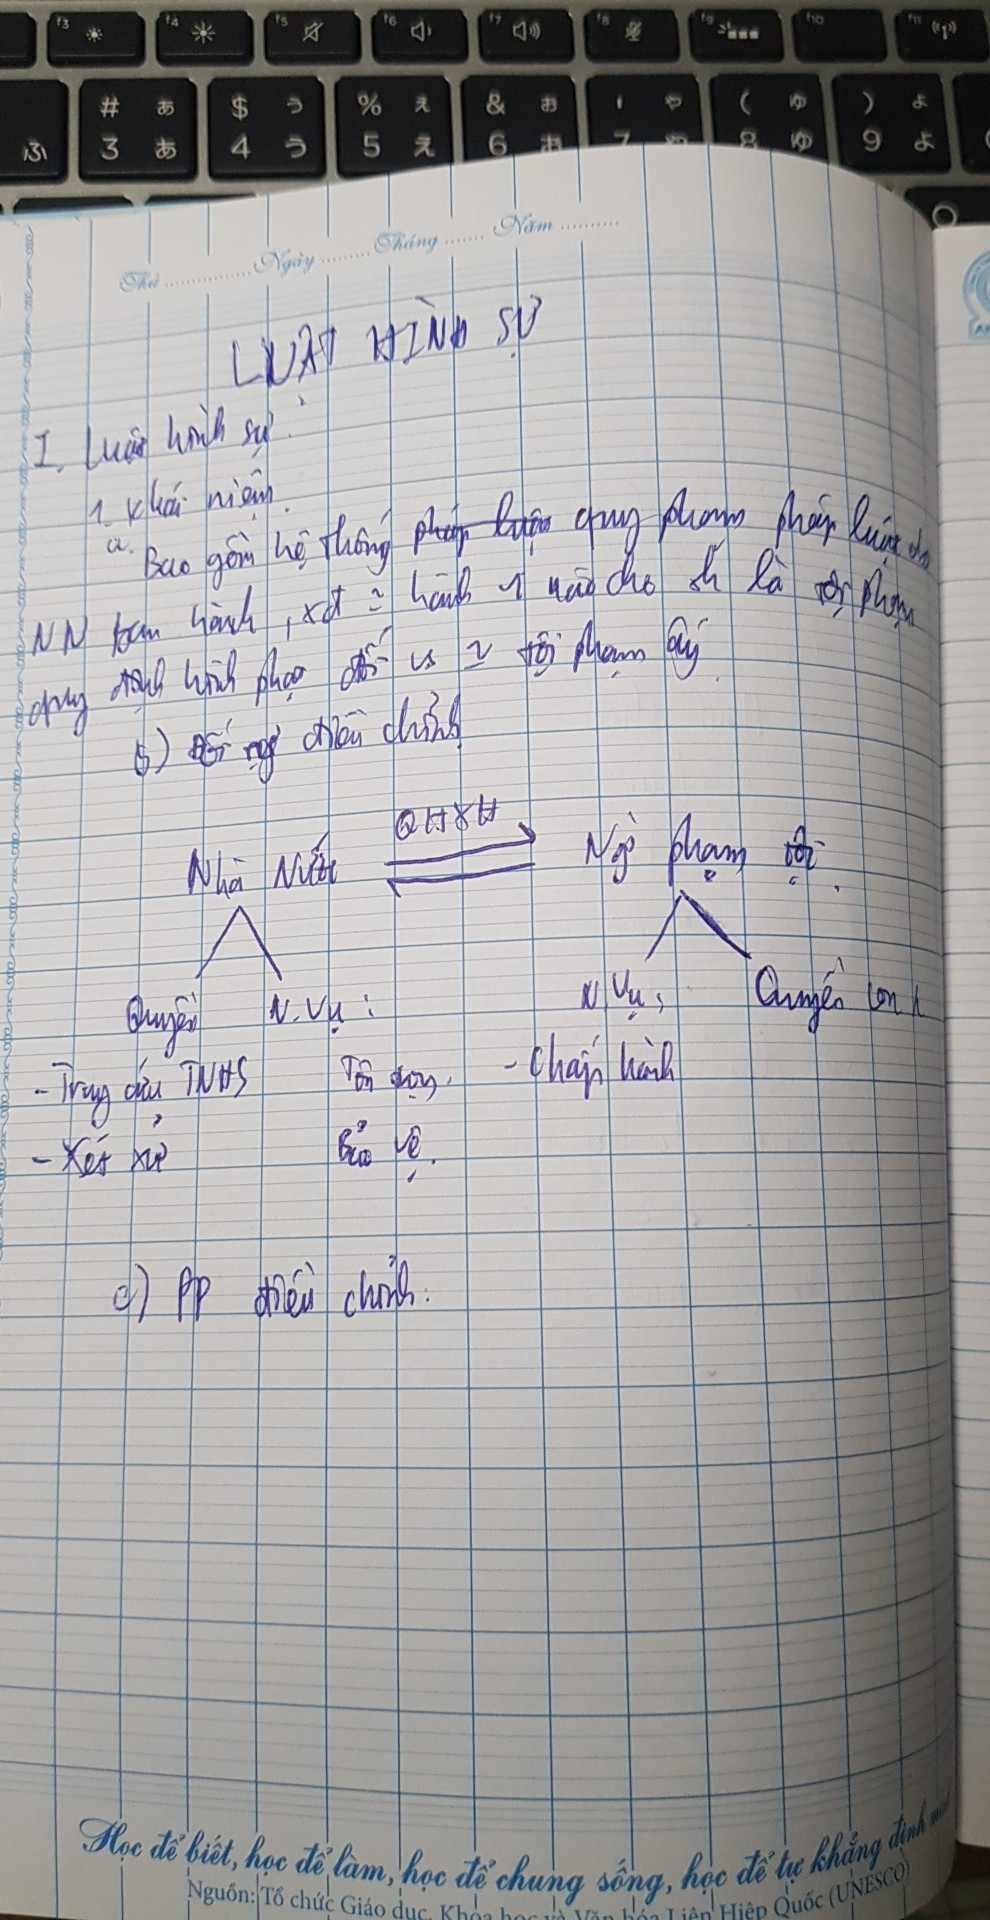 f3 f4 f5 f6 f7 f8 f9 f10 f11
# ぁ $ ぅ % ぇ & ぉ ' ゃ ( ゅ ) ょ
ふ 3 あ 4 う 5 え 6 お 7 や 8 ゆ 9 よ
Thứ ............ Ngày ......... Tháng ....... Năm ..........
LUẬT HÌNH SỰ
I. Luật hình sự:
1. Khái niệm.
a. Bao gồm hệ thống pháp luật quy phạm pháp luật do
NN ban hành, xđ ~ hành vi nào cho là tội phạm
quy định hình phạt đối vs ~ tội phạm ấy.
b) Đối tg điều chỉnh
QHXH
Nhà Nước Ng` phạm tội.
Quyền N.Vụ: N.Vụ: Quyền con
- Truy cứu TNHS Tôn trọng. - Chấp hành
- Xét xử Bảo vệ.
c) PP điều chỉnh:
Học để biết, học để làm, học để chung sống, học để tự khẳng định
Nguồn: Tổ chức Giáo dục, Khoa học và Văn hóa Liên Hiệp Quốc (UNESCO)